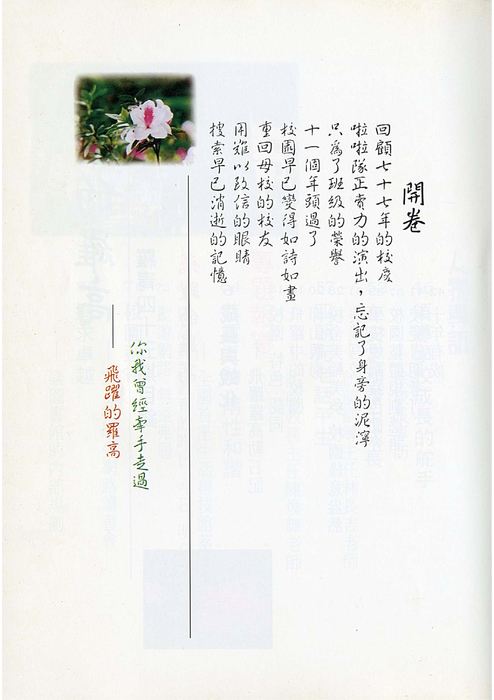 開卷
回顧七十七年的校慶
啦啦隊正賣力的演出，忘記了身旁的泥濘
只為了班級的榮譽
十一個年頭過了
校園早已變得如詩如畫
重回母校的校友
用難以致信的眼睛
搜索早已消逝的記憶
你我曾經牽手走過
——飛躍的羅高